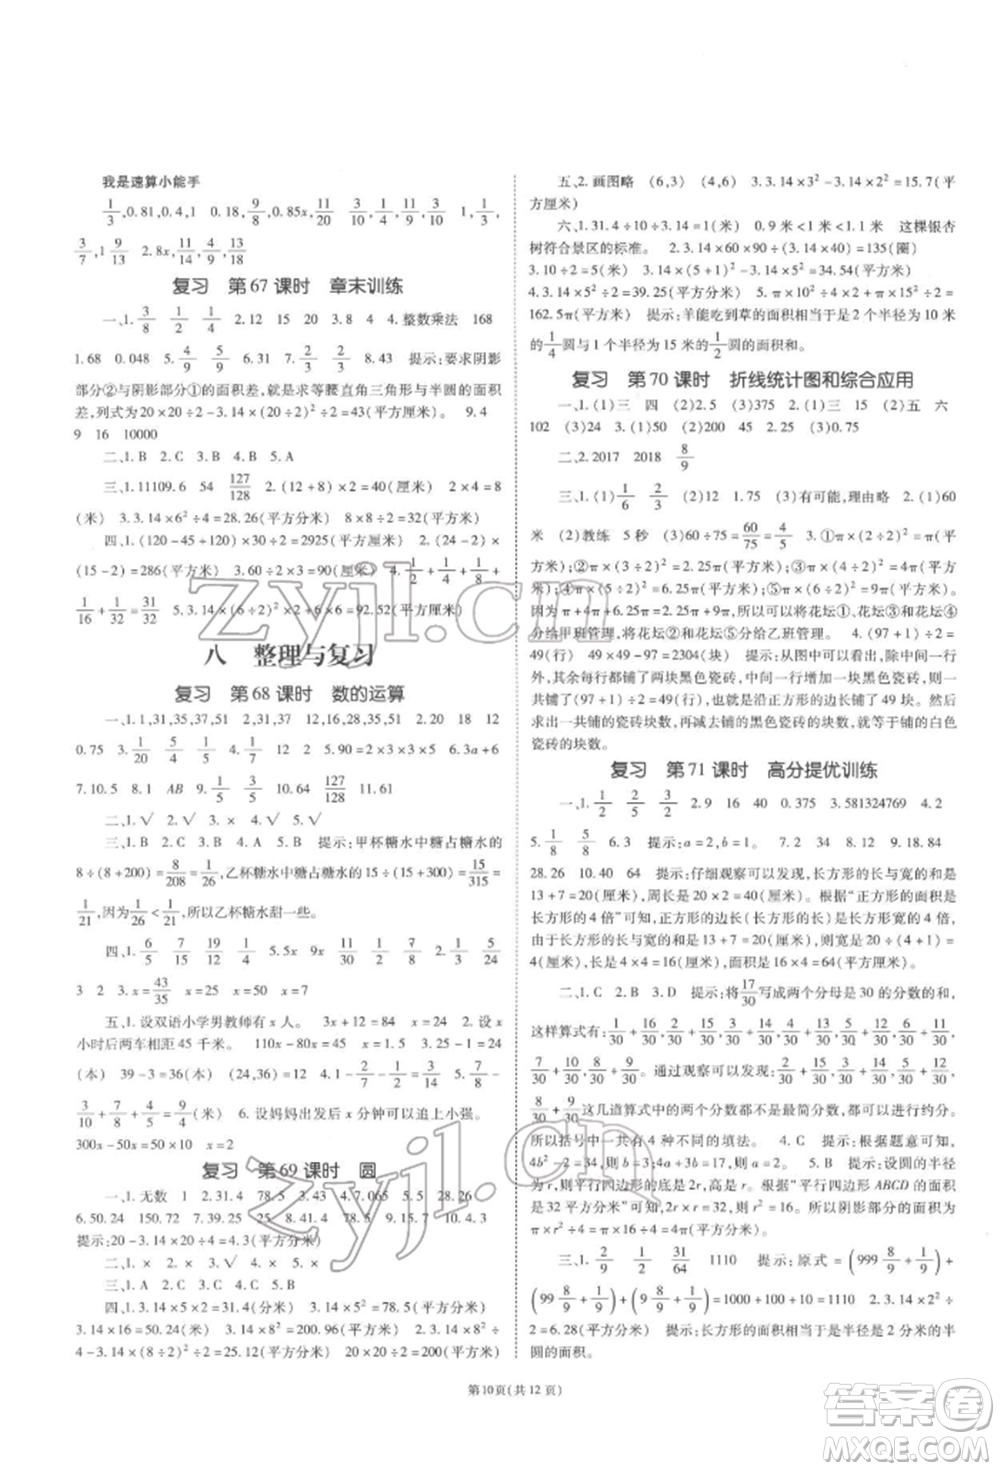 我是速算小能手
1/3,0.81,0.4,1 0.18,9/8,0.85x,11/20 3/10 13/10 11/10 1,1/3,
3/7,1 9/13 2.8x,11/14,19/20
复习 第67课时 章末训练
一、1. 3/8 1/2 1/4 2.12 15 20 3.8 4 4.整数乘法 168
1.68 0.048 5. 4/9 5/9 6.30 7.2 8.43 提示:要求阴影
部分②与阴影部分①的面积差,就是求等腰直角三角形与半圆的面积
差,列式为20×20÷2-3.14×(20÷2)²÷2=43(平方厘米)。 9.4
9 16 10000
二、1.B 2.C 3.B 4.B 5.A
三、1.11109.6 54 127/128 2.(12+8)×2=40(厘米) 2×4=8
(米) 3.3.14×6²÷4=28.26(平方分米) 8×8÷2=32(平方米)
四、1.(120-45)×(120-45)÷30÷2=2925(平方米) 2.(24-2)×
(15-2)=286(平方米) 3.60÷2×3=90(厘米) 4. 1/2+1/4+1/8+
1/16+1/32=31/32 5.3.14×(6÷2)²÷2×6+6×6=92.52(平方厘米)
八 整理与复习
复习 第68课时 数的运算
一、1.1,31,35,37,51 2,6,12,16,26,35,51 2.20 18 12
0.75 3. 1/20 5/4 1/5 4.12 7 1/2 5.90 2 6.3a+6
7.10.5 8.1 AB 9. 5/3 3/5 10.24 11. 127/128
二、1.√ 2.× 3.√ 4.√
三、1.A 2.B 3.C 4.A 5.B 提示:甲杯糖水中糖占糖水的
8÷(8+200)=8/208=1/26,乙杯糖水中糖占糖水的15÷(15+300)=15/315=
1/21,因为1/26<1/21,所以乙杯糖水甜。
四、1. 6/5 7/15 19/15 0.5 9x 9x 1 2. 5/24 5/24
3 2 3.x=43/35 x=25 x=6 x=70
五、1.设双语小学男教师有x人。 3x+12=84 x=24 2.设x
小时后两车相距45千米。 110x-80x=45 x=1.5 3.21+3=24
(本) 39-3=36(本) (24,36)=12(本)
3/10+7/8+5/4=9/4(米) 6.设妈妈出发后x分钟可以追上小强。
300x-50x=50×10 x=2
复习 第69课时 圆
一、1.无数 1 2.31.4 78.5 3.4 4.7.065 5.5 28.26
6.50.24 150.72 7.39.25 8.4 12.56 9.50.24 10.4.3
提示:2×4-3.14×2²÷4=4.3(平方分米)
二、1.× 2.× 3.× 4.×
三、1.A 2.C 3.C 4.B 5.A
四、1.3.14×5×2=31.4(分米) 3.14×5²=78.5(平方分米)
3.14×16=50.24(米) 3.14×8²=200.96(平方米) 2.3.14×9²-
3.14×3.14×(20÷2)²÷2=157(平方厘米)
五、2.画图略 (6,3) (4,6) 3.3.14×3²-3.14×2²=15.7(平
方厘米)
六、1.31.4÷10÷3.14=1(米) 0.9米<1米<1.2米 这棵银杏
树符合景区的标准。 2.3.14×60×90÷(3.14×40)=135(圈)
3.10÷2=5(米) 3.14×(5+1)²-3.14×5²=34.54(平方米)
162.5π(平方米) 提示:羊能吃到草的面积相当于是2个半径为10米
的1/4圆与1个半径为15米的1/2圆的面积和。
复习 第70课时 折线统计图和综合应用
一、1.(1)三 四 (2)2.5 (3)375 2.(1)三 15 (2)五 六
102 (3)24 3.(1)50 (2)200 45 (3)0.75
二、2.2017 2018 8/9
三、1.(1)1/6 2/3 (2)12 1.75 (3)有可能,理由略 2.(1)60
米 (2)教练 5秒 (3)60÷75=60/75=4/5 3.①π×(2÷2)²=π(平
方米);②π×(4÷2)²=4π(平方米);③π×(5÷2)²=6.25π(平方
米);④π×(3÷2)²=2.25π(平方米);⑤π×(6÷2)²=9π(平方米)。
因为π+4π+6.25π=2.25π+9π,所以可以将花坛①、花坛②和花坛④
分给甲班管理,可以将花坛③、花坛⑤分给乙班管理。 4.(97+1)÷2=
49(行) 49×49-97=2304(块) 提示:从图中可以看出:黑色瓷砖
除第一行外,每行都比前一行多铺了两块黑色瓷砖,中间增加一块黑色
瓷砖,所以一共铺了(97+1)÷2=49(行),也就是沿正方形的边长铺了49块。然后
求出一共铺的瓷砖块数,再减去铺的黑色瓷砖的块数,就等于铺的白色
瓷砖的块数。
复习 第71课时 高分提优训练
一、1. 1/2 2/5 3/2 2.9 16 40 0.375 3.581324769 4.2
5. 1/8 5/8 6.3 提示:a=2,b=1。 7.34 8.12 9.18.84
28.26 10.40 64 提示:仔细观察可以发现,长方形的长与宽的和是
13+7=20(厘米),周长是20×2=40(厘米)。根据“正方形的面积是
长方形的4倍”可知,正方形的边长(长方形的长)是长方形宽的4倍,
由于长方形的长与宽的和是13+7=20(厘米),所以宽是20÷(4+1)=
4(厘米),长是4×4=16(厘米),面积是16×4=64(平方厘米)。
二、1.C 2.B 3.D 提示:将17/30写成两个分母是30的分数的和,
这样算式有:1/30+16/30,2/30+15/30,3/30+14/30,4/30+13/30,5/30+12/30,6/30+11/30,
7/30+10/30,8/30+9/30。通过观察可以发现,1/30+16/30,4/30+13/30,7/30+10/30,
8/30+9/30这几道算式中的两个分数都不是最简分数,可以进行约分。
所以括号中一共有4种不同的填法。 4.C 提示:根据题意可知,
4b²-b²=3b²=12,所以b²=4,b=2。 5.B 提示:设圆的半径
为r,则平行四边形的底是2r,高是r。根据“平行四边形ABCD的面积
是32平方厘米”可知,2r×r=32,r²=16。所以阴影部分的面积是
π×r²÷4=π×16÷4=4π(平方分米)。
三、1. 2/9 1/2 31/64 1110 提示:原式=(999 8/9+1/9)+
(99 8/9+1/9)+(9 8/9+1/9)=1000+100+10=1110 2.3.14×2²÷
2=6.28(平方米) 提示:长方形的面积相当于是半径是2分米的半
圆的面积。
第10页(共12页)
zyjl.cn
zyjl.cn
答案圈
MXQE.COM